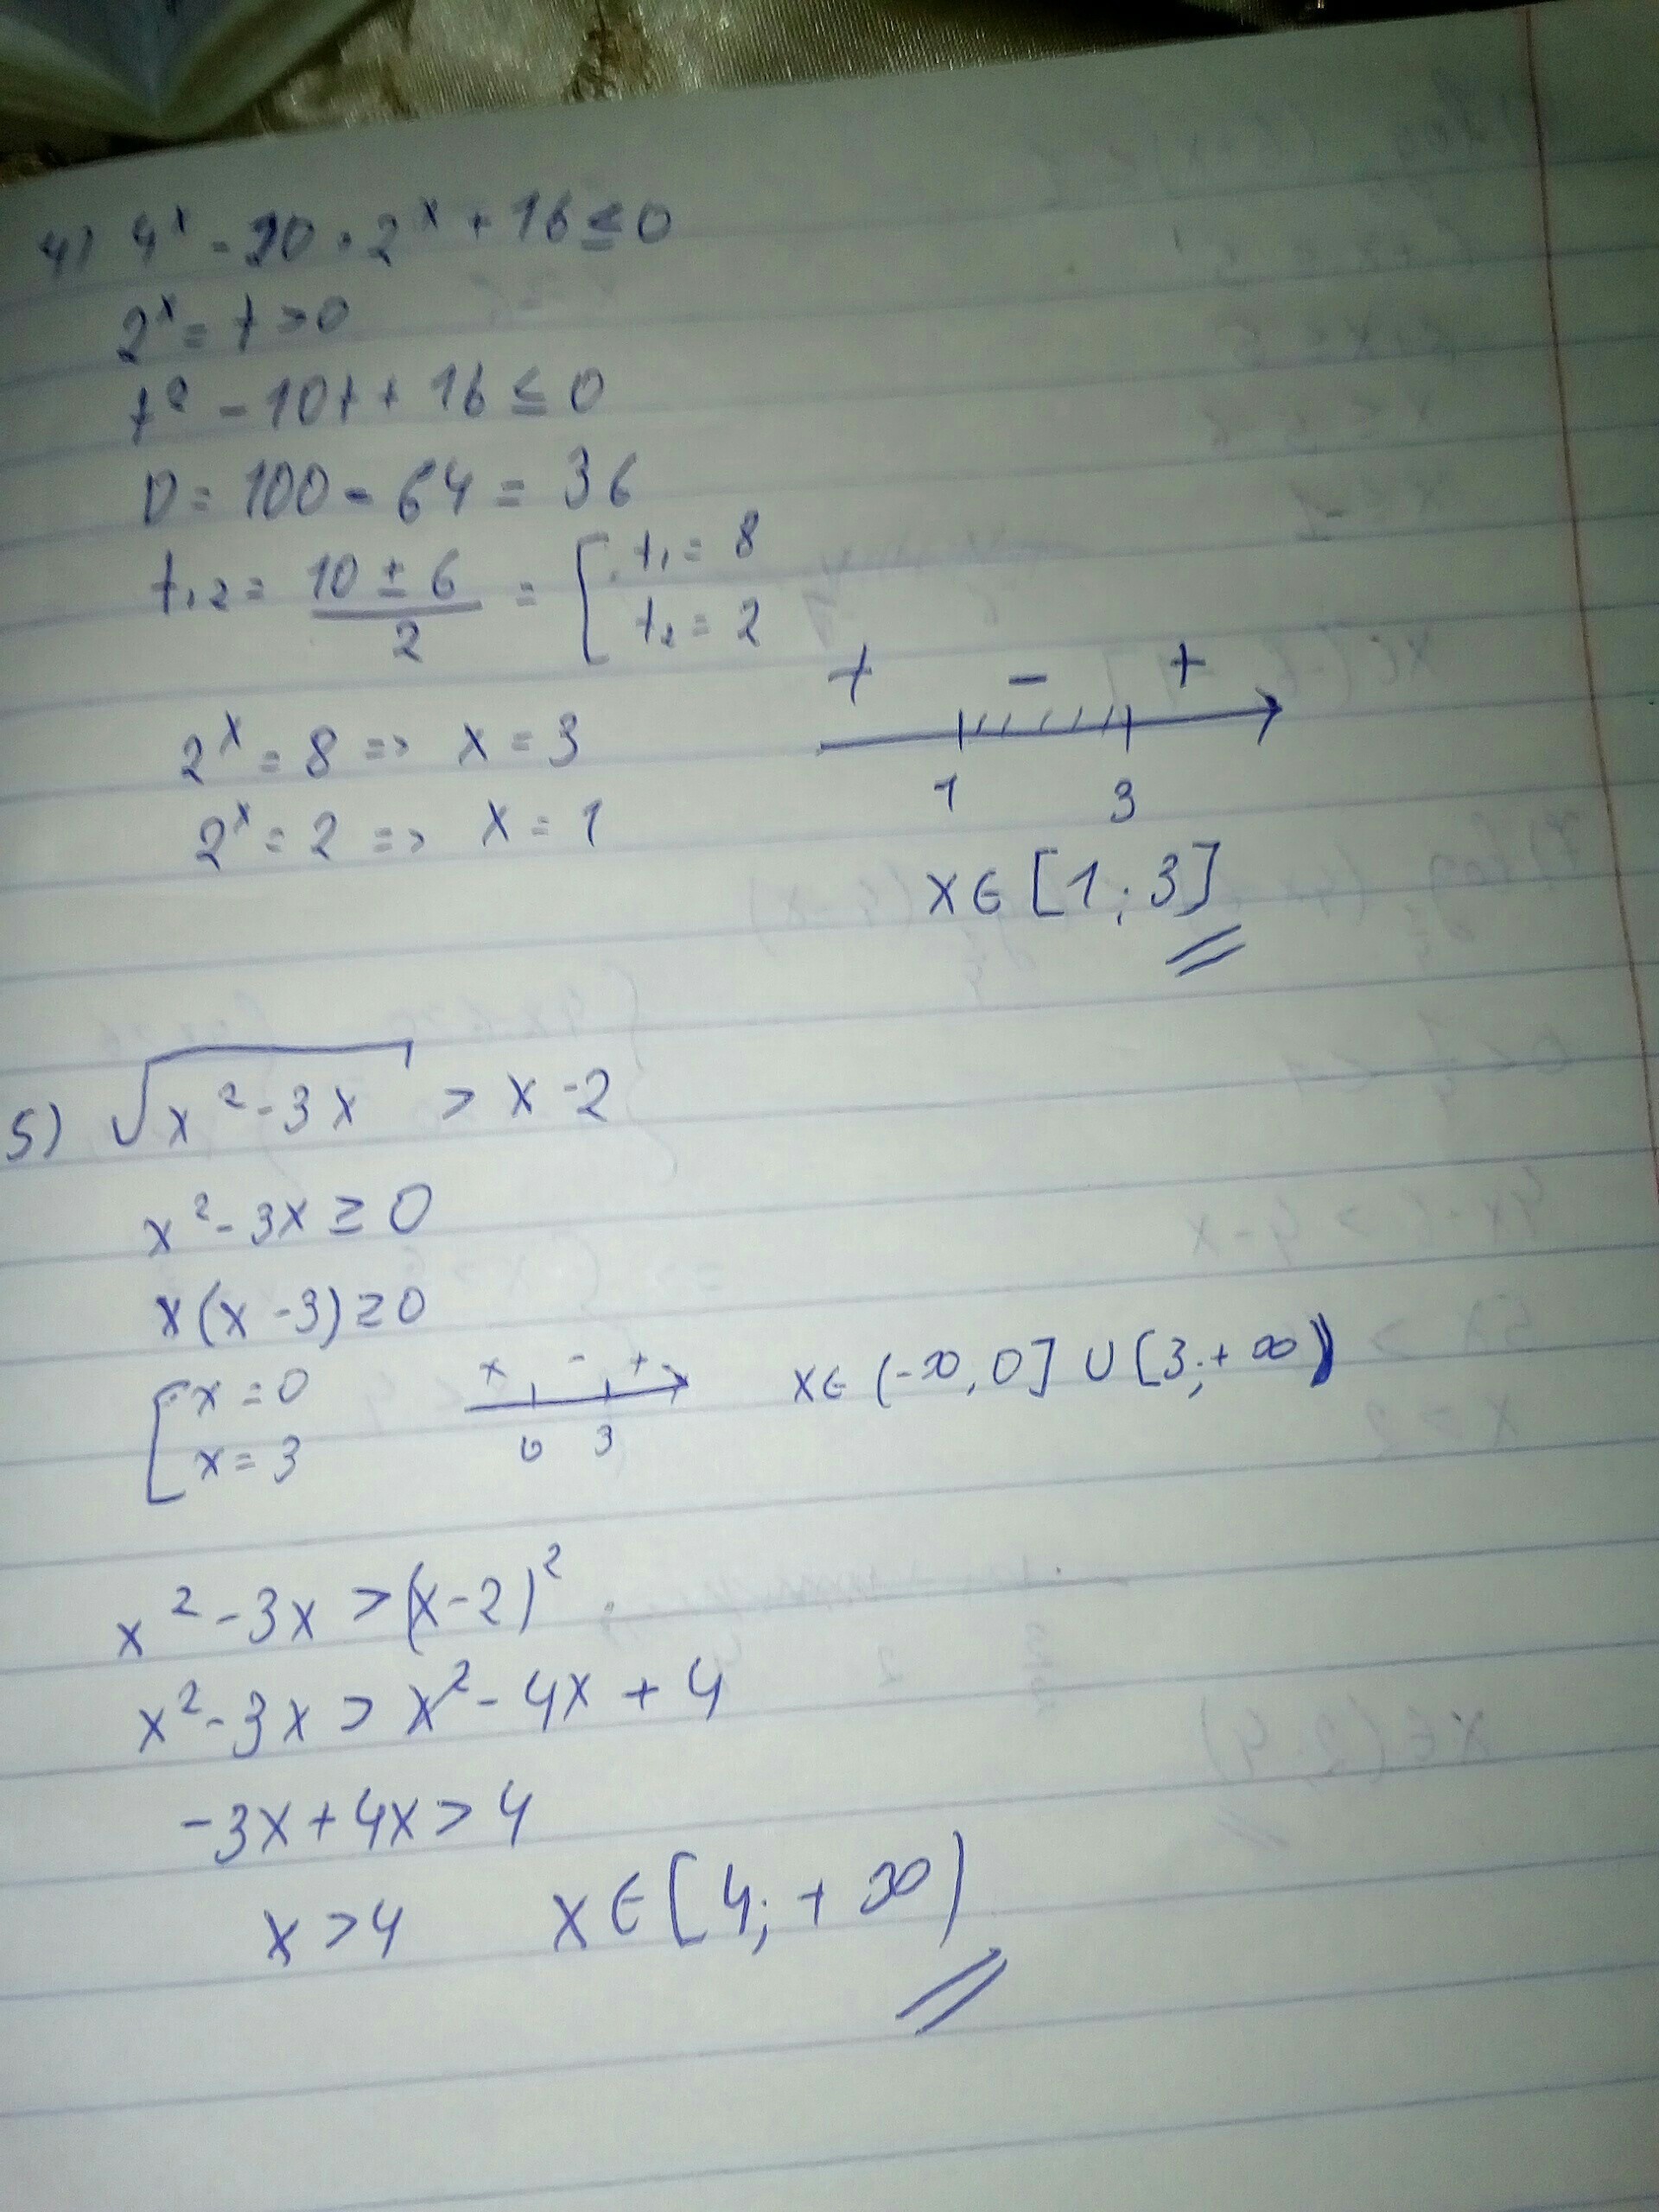 4) 4ˣ - 10 · 2ˣ + 16 ≤ 0
2ˣ = t > 0
t² - 10t + 16 ≤ 0
D = 100 - 64 = 36
t₁,₂ = (10 ± 6)/2 = [ t₁ = 8
t₂ = 2
+ - +
2ˣ = 8 => x = 3
1 3
2ˣ = 2 => x = 1
x ∈ [1; 3]
5) √(x² - 3x) > x - 2
x² - 3x ≥ 0
x(x - 3) ≥ 0
[ x = 0
x = 3
+ - +
0 3
x ∈ (-∞, 0] ∪ [3; +∞)
x² - 3x > (x - 2)²
x² - 3x > x² - 4x + 4
-3x + 4x > 4
x > 4 x ∈ [4; +∞)